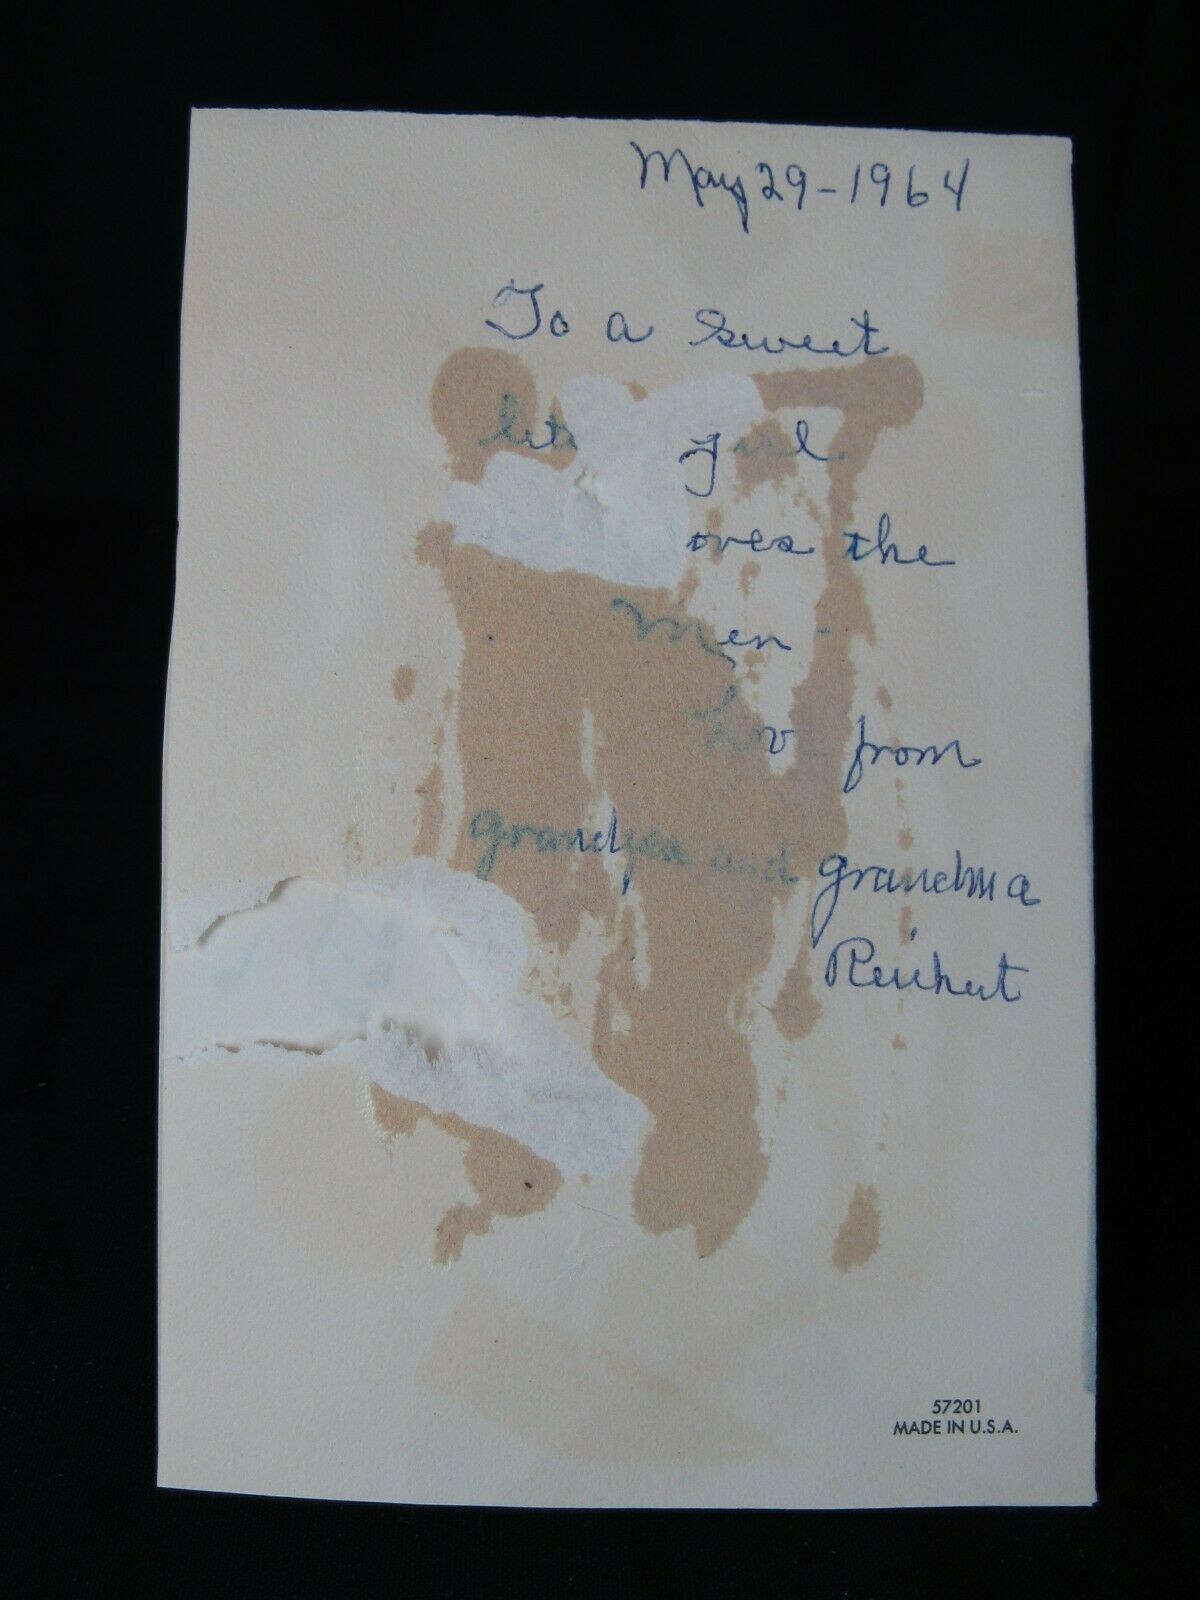 May 29-1964
To a sweet
girl
oves the
men
from
grandpa and grandma
57201
MADE IN U.S.A.